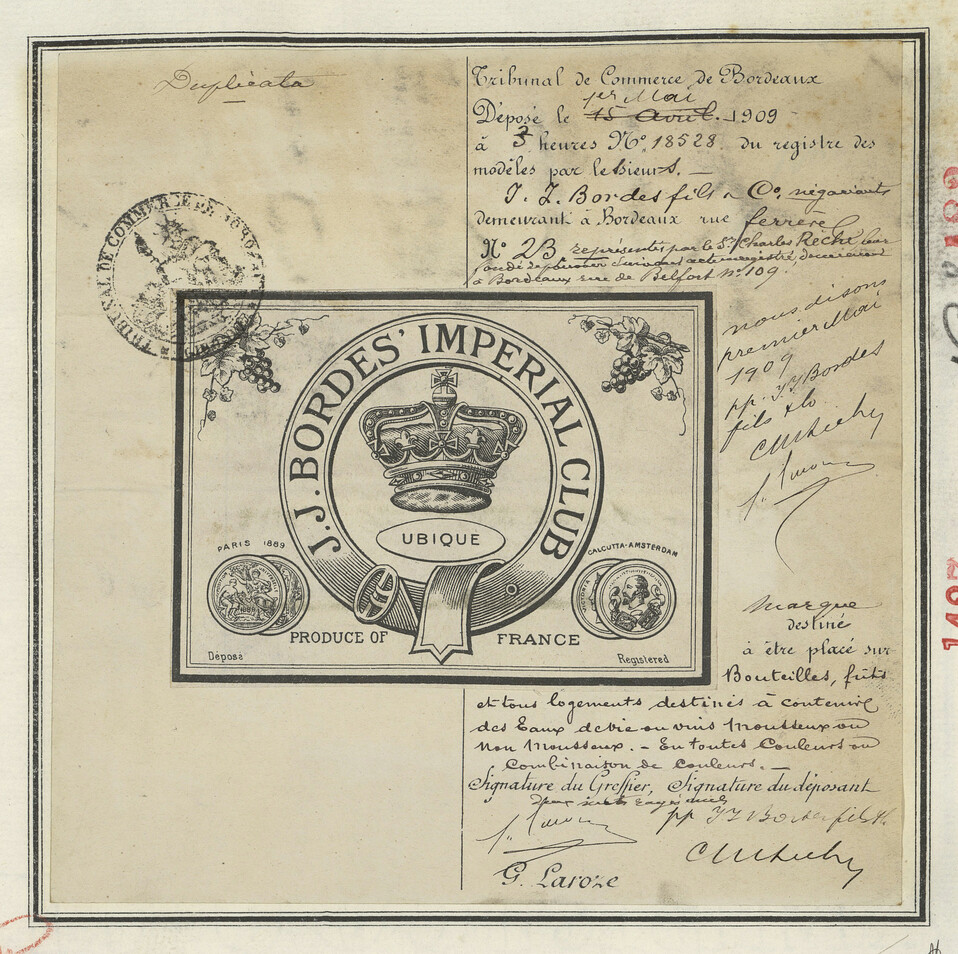 Duplicata
Tribunal de Commerce de Bordeaux
1er Mai
Déposé le 15 Avril 1909
à 3 heures No. 18528 du registre des
modèles par le Sieurs. —
J. J. Bordes fils & Co. négociants
demeurant à Bordeaux rue Ferrère
No 2B représentés par le Sr Charles Réché leur
fondé de pouvoir suivant acte enregistré, demeurant
à Bordeaux rue de Belfort no 109
TRIBUNAL DE COMMERCE DE
nous disons
premier Mai
1909
pp. J J Bordes
fils & Co
J. J. BORDES' IMPERIAL CLUB
UBIQUE
PARIS 1889
CALCUTTA-AMSTERDAM
PRODUCE OF FRANCE
Déposé
Registered
Marque
destiné
à être placé sur
Bouteilles, fûts
et tous logements destinés à contenir
des Eaux de vie ou vins Mousseux ou
Non Mousseux. — En toutes Couleurs ou
Combinaison de Couleurs. —
Signature du Greffier, Signature du déposant
pp J J Bordes fils &
G. Laroze